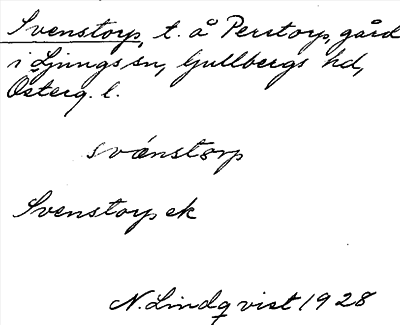 Svenstorp, t. å Perstorp, gård
i Ljungs sn, Gullbergs hd,
Österg. l.
svǽnstørp
Svenstorps ek
N. Lindqvist 1928